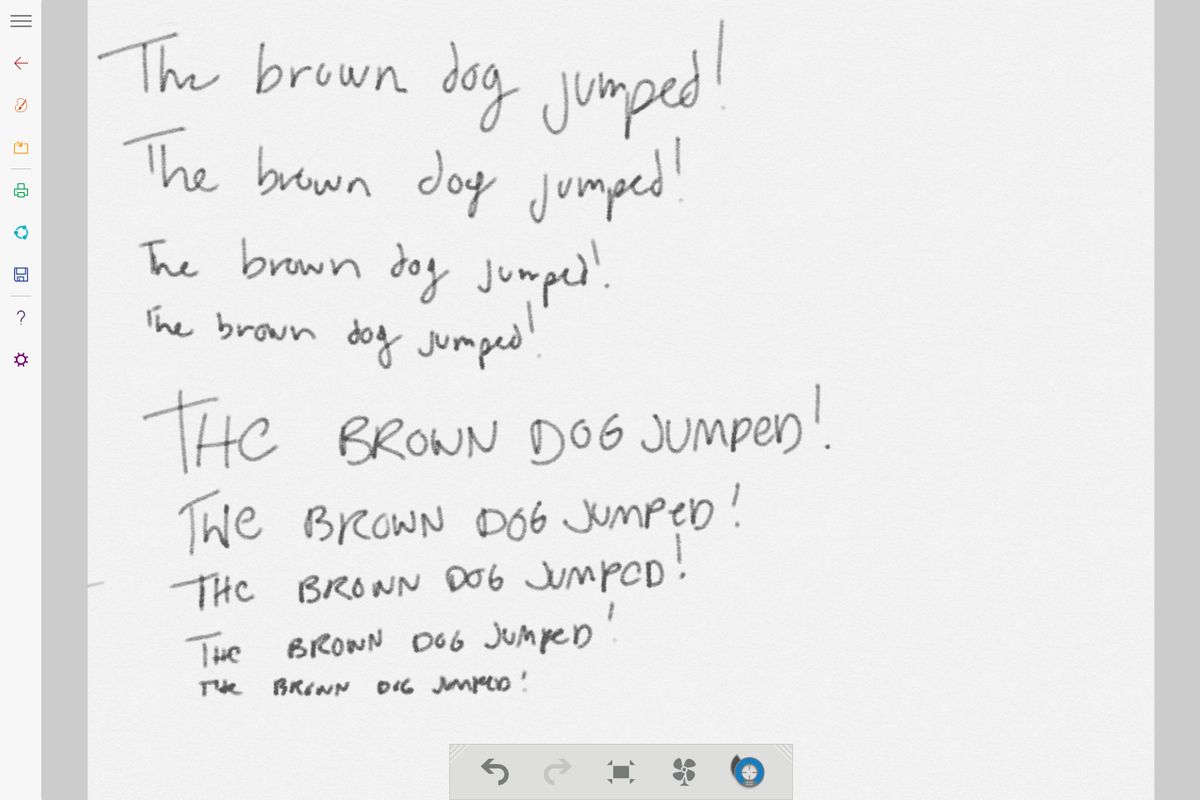 The brown dog jumped!
The brown dog jumped!
The brown dog jumped!
The brown dog jumped!
THE BROWN DOG JUMPED!
THE BROWN DOG JUMPED!
THE BROWN DOG JUMPED!
THE BROWN DOG JUMPED!
THE BROWN DOG JUMPED!
?